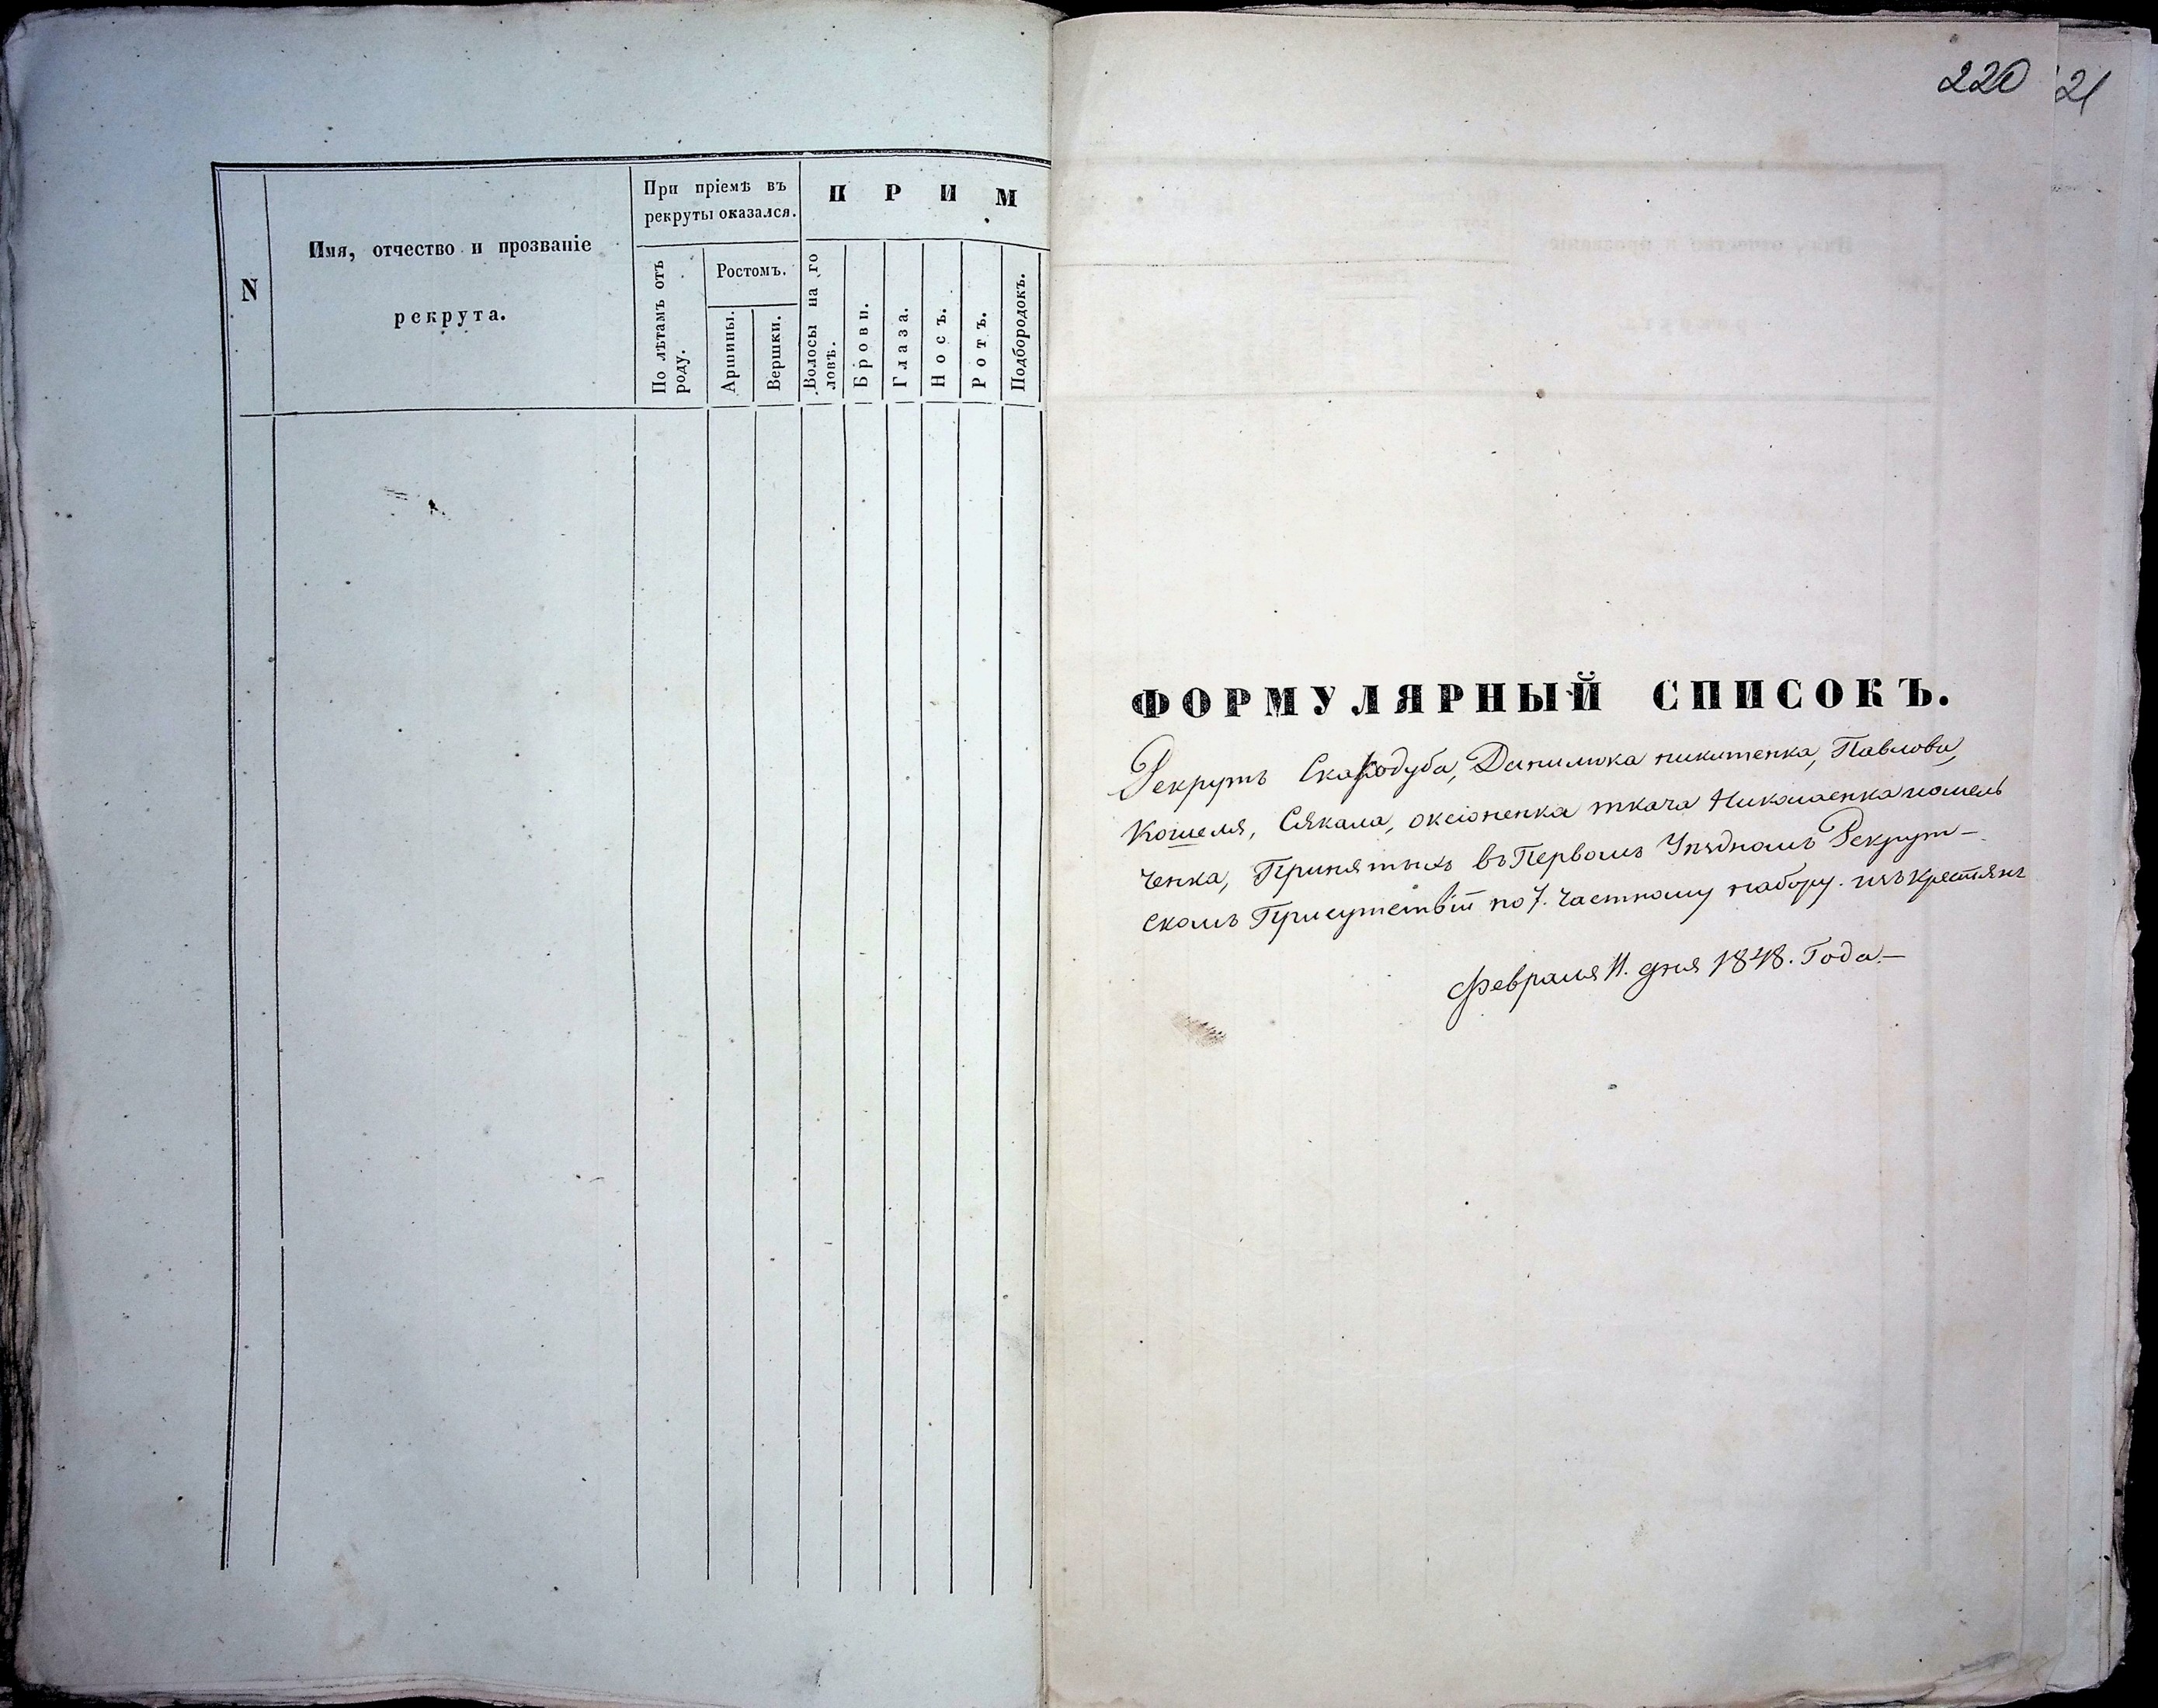 N
Имя, отчество и прозваніе
рекрута.
При пріемѣ въ
рекруты оказался.
По лѣтамъ отъ
роду.
Ростомъ.
Аршины.
Вершки.
П Р И М
Волосы на го
ловѣ.
Брови.
Глаза.
Носъ.
Ротъ.
Подбородокъ.
220
21
ФОРМУЛЯРНЫЙ СПИСОКЪ.
Рекрутъ Скакодуба, Данилюка никитенка, Павлова,
Кошеля, Сякала, оксіоненка ткача Николаенка
ченка, Принятыхъ въ Первомъ Уѣздномъ Рекрут-
скомъ Присутствіи по 7. частному набору. изъ крестьянъ
Февраля 11. дня 1848. Года.—